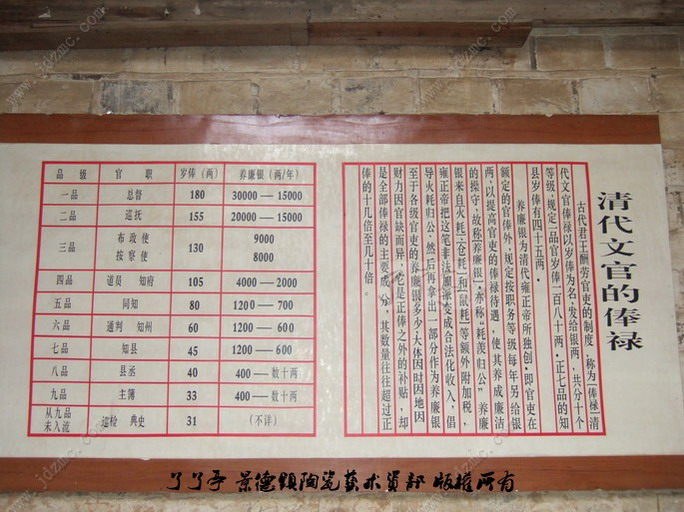 清代文官的俸禄
古代君王酬劳官吏的制度，称为“俸禄”。清
代文官俸禄以岁俸为名，发给银两，共分十个
等级，规定一品官岁俸一百八十两，正七品的知
县岁俸有四十五两。
养廉银为清代雍正帝所独创，即官吏在
额定的官俸外，规定按职务等级每年另给银
两，以提高官吏的俸禄待遇，使其养成廉洁
的操守，故称养廉银，亦称“耗羡归公”。养廉
银来自火耗“仓耗”和“鼠耗”等额外附加税，
雍正帝把这笔非法 变成合法化收入，倡
导火耗归公，然后再拿出一部分作为养廉银
至于各级官吏的养廉银多少，大体因时因地因
财力因官缺而异，它是正俸之外的补贴，却
是全部俸禄的主要成分，其数量往往超过正
俸的十几倍至几十倍。
品级 官职 岁俸（两） 养廉银（两/年）
一品 总督 180 30000—15000
二品 巡抚 155 20000—15000
三品 布政使 按察使 130 9000 8000
四品 道员 知府 105 4000—2000
五品 同知 80 1200—700
六品 通判 知州 60 1200—600
七品 知县 45 1200—600
八品 县丞 40 400—数十两
九品 主簿 33 400—数十两
从九品 未入流 巡检 典史 31 （不详）
景德镇陶瓷艺术资部 版权所有
www.jdzmc.com